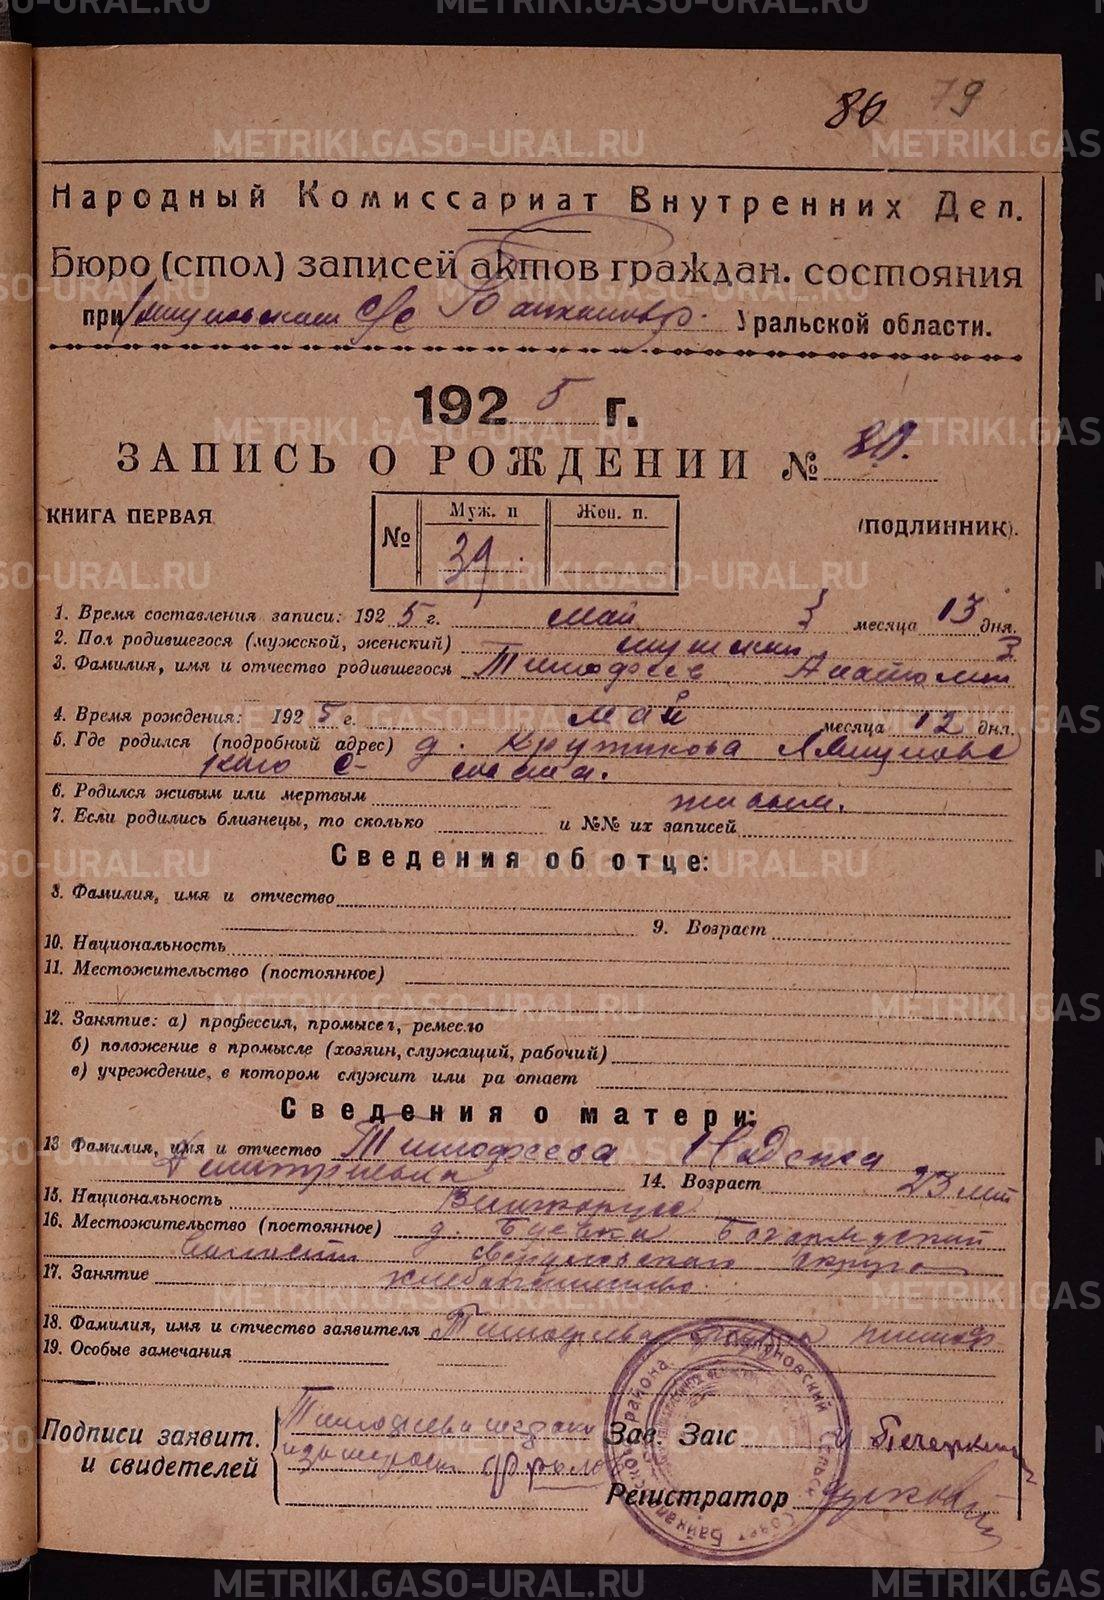 80 79
Народный Комиссариат Внутренних Дел.
Бюро (стол) записей актов граждан. состояния
при с/с Уральской области.
1925 г.
ЗАПИСЬ О РОЖДЕНИИ № 80.
КНИГА ПЕРВАЯ
№ Муж. п Жен. п.
39.
(ПОДЛИННИК).
1. Время составления записи: 1925 г. май месяца 13 дня.
2. Пол родившегося (мужской, женский) мужской
3. Фамилия, имя и отчество родившегося Тимофеев Анатолий
4. Время рождения: 1925 г. май месяца 12 дня.
5. Где родился (подробный адрес) д. Крутикова
кого С- совета.
6. Родился живым или мертвым живым.
7. Если родились близнецы, то сколько и №№ их записей
Сведения об отце:
8. Фамилия, имя и отчество
9. Возраст
10. Национальность
11. Местожительство (постоянное)
12. Занятие: а) профессия, промысел, ремесло
б) положение в промысле (хозяин, служащий, рабочий)
в) учреждение, в котором служит или ра отает
Сведения о матери:
13 Фамилия, имя и отчество Тимофеева Надежа
Дмитриевна 14. Возраст 23 лет
15. Национальность
16. Местожительство (постоянное) д.
волости свердловского округа
17. Занятие хлебопашество.
18. Фамилия, имя и отчество заявителя Тимофеева
19. Особые замечания
Подписи заявит. и свидетелей
Тимофеева
Зав Загс Печеркин
Регистратор
METRIKI.GASO-URAL.RU